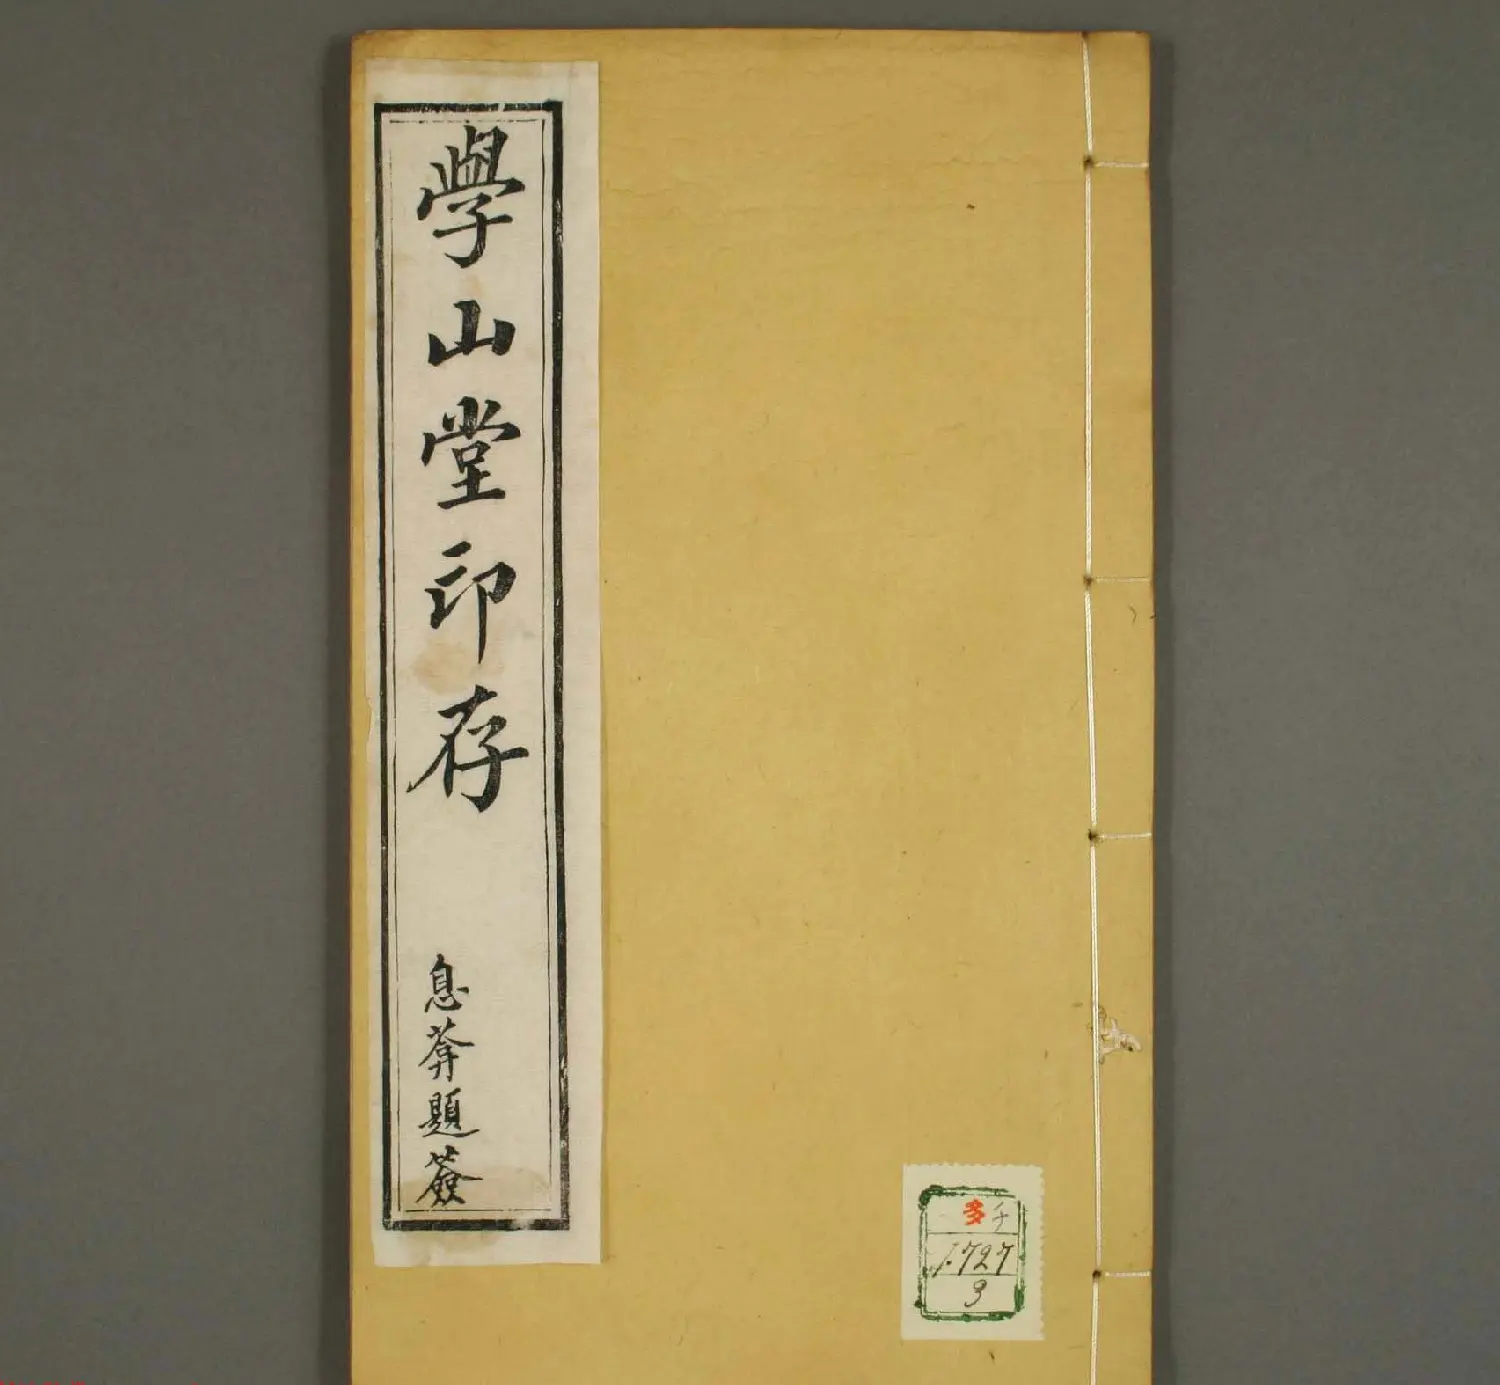 學山堂印存
息莽題簽
多 子
1.727
3